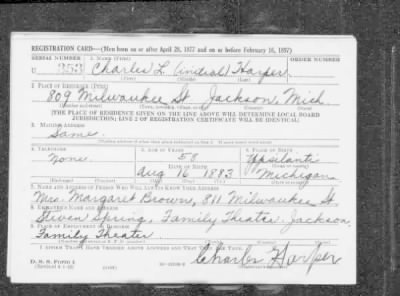 REGISTRATION CARD—(Men born on or after April 28, 1877 and on or before February 16, 1897)
SERIAL NUMBER 1. NAME (Print) ORDER NUMBER
U 353 Charles L. (initial) Harper
(First) (Middle) (Last)
2. PLACE OF RESIDENCE (Print)
809 Milwaukee St Jackson, Mich.
(Number and street) (Town, township, village, or city) (County) (State)
[THE PLACE OF RESIDENCE GIVEN ON THE LINE ABOVE WILL DETERMINE LOCAL BOARD
JURISDICTION; LINE 2 OF REGISTRATION CERTIFICATE WILL BE IDENTICAL]
3. MAILING ADDRESS
Same.
[Mailing address if other than place indicated on line 2. If same insert word same]
4. TELEPHONE 5. AGE IN YEARS 6. PLACE OF BIRTH
None. 58 Ypsilanti
DATE OF BIRTH (Town or county)
Aug 16 1883 Michigan
(Exchange) (Number) (Mo.) (Day) (Yr.) (State or country)
7. NAME AND ADDRESS OF PERSON WHO WILL ALWAYS KNOW YOUR ADDRESS
Mrs. Margaret Brown, 811 Milwaukee St
8. EMPLOYER'S NAME AND ADDRESS
Steven Spring, Family Theater, Jackson
9. PLACE OF EMPLOYMENT OR BUSINESS
Family Theater
(Number and street or R. F. D. number) (Town) (County) (State)
I AFFIRM THAT I HAVE VERIFIED ABOVE ANSWERS AND THAT THEY ARE TRUE.
D. S. S. Form 1
Charles Harper